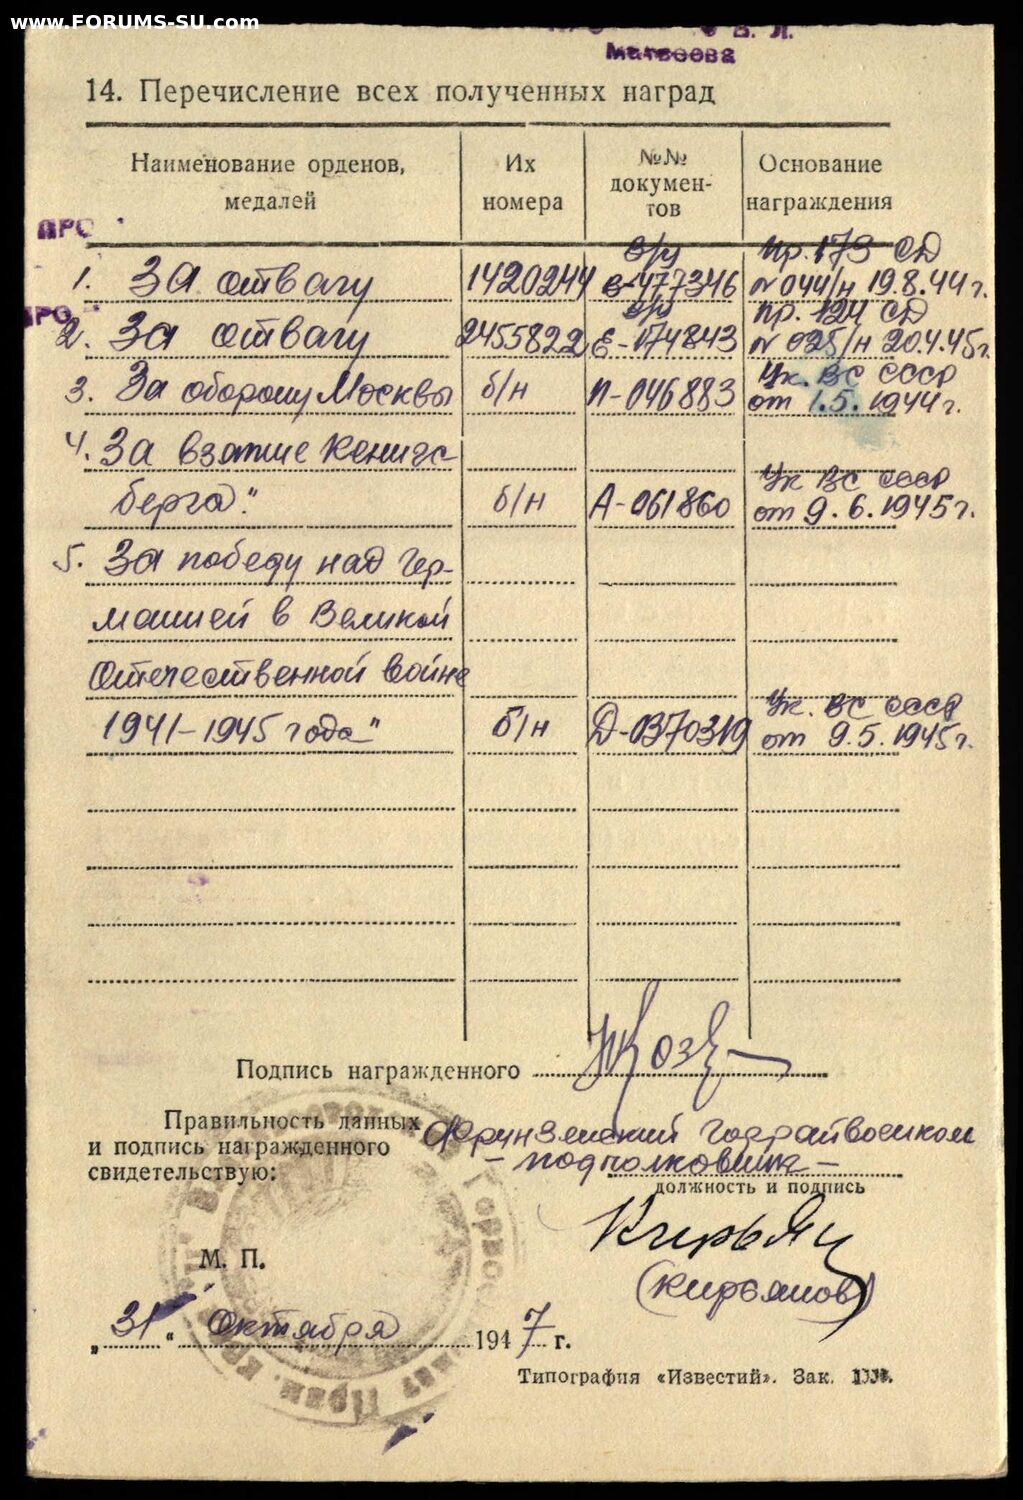 www.FORUMS-SU.com
В. Л.
Матвеева
14. Перечисление всех полученных наград
Наименование орденов, медалей
Их номера
№№ документов
Основание награждения
ПРО
1. За отвагу 1420244 в/у Б-477346 Пр. 173 СД № 044/н 19.8.44 г.
ПРО
2. За отвагу 2455822 в/у Е-174843 Пр. 124 СД № 025/н 20.4.45г.
3. За оборону Москвы б/н П-046883 Ук. ВС СССР от 1.5.1944г.
4. За взятие Кенигс-
берга" б/н А-061860 Ук ВС СССР от 9.6.1945г.
5. За победу над Гер-
манией в Великой
Отечественной войне
1941-1945 года" б/н Д-0370319 Ук. ВС СССР от 9.5.1945г.
Подпись награжденного
Правильность данных
и подпись награжденного
свидетельствую:
Фрунзенский Горрайвоенком
- подполковник -
должность и подпись
Кирьян
М. П.
(Кирьянов)
„31“ Октября 1947 г.
Типография «Известий». Зак.